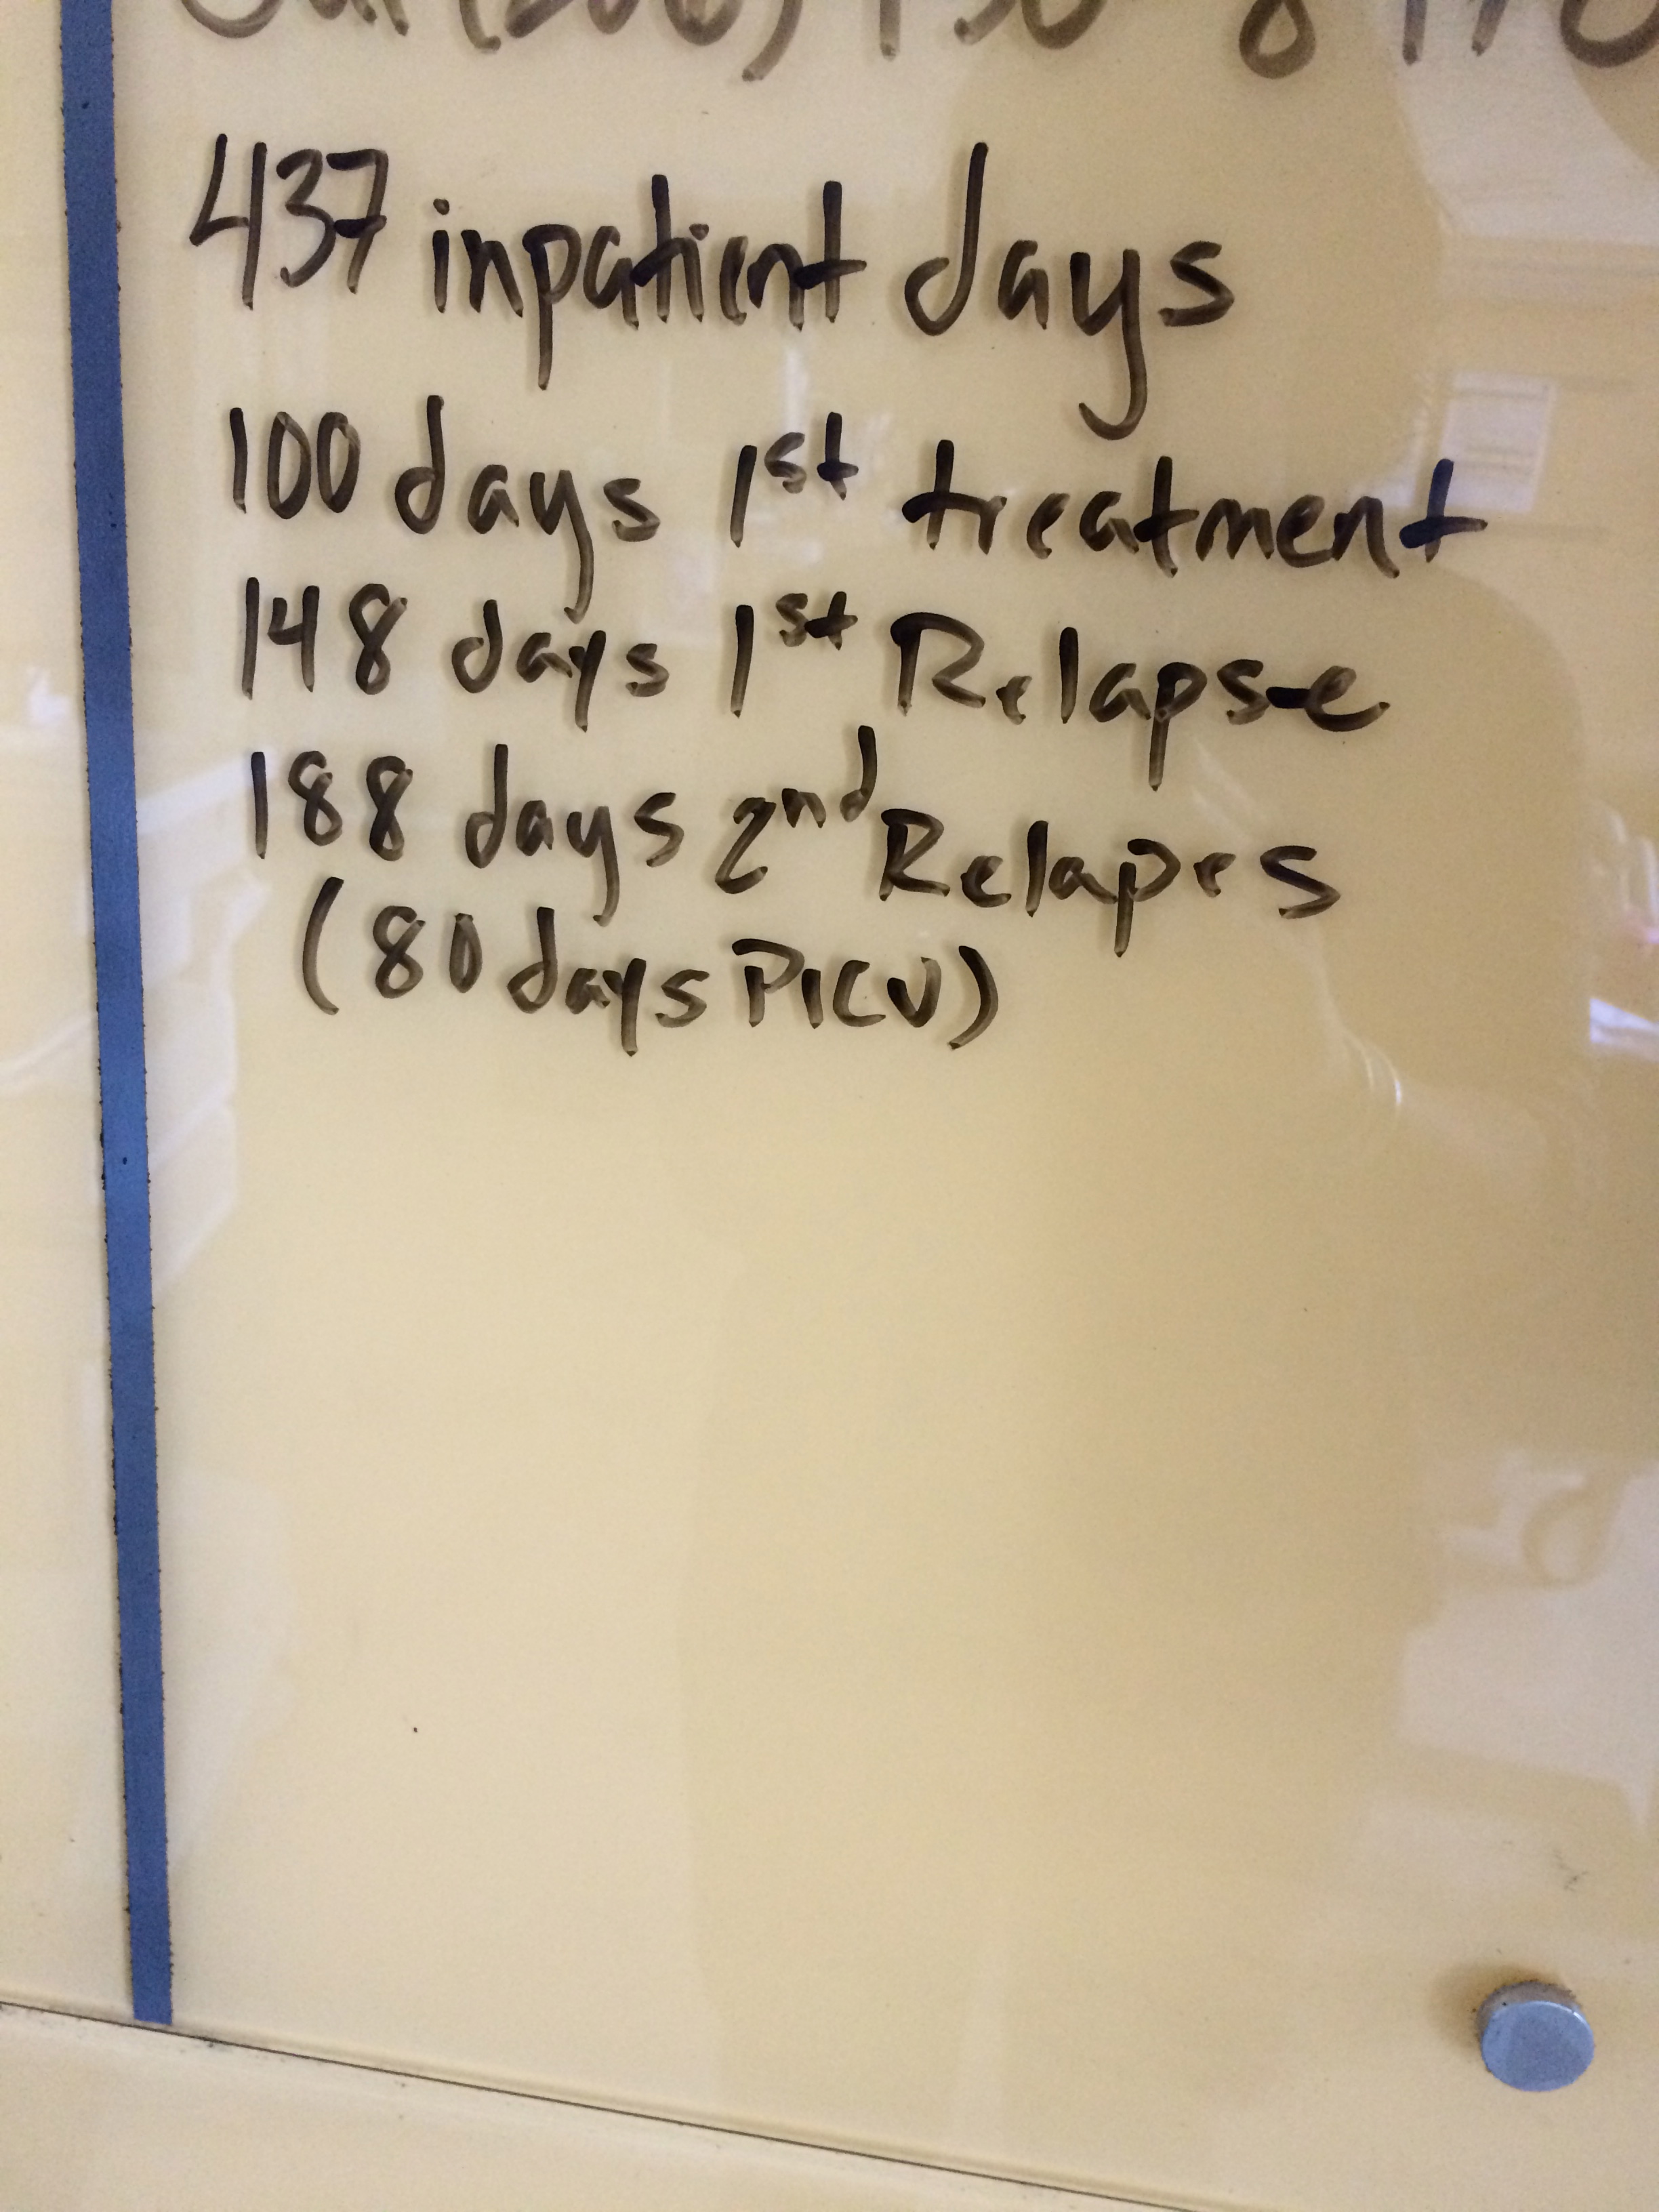 437 inpatient days
100 days 1st treatment
148 days 1st Relapse
188 days 2nd Relapes
(80 days PICU)